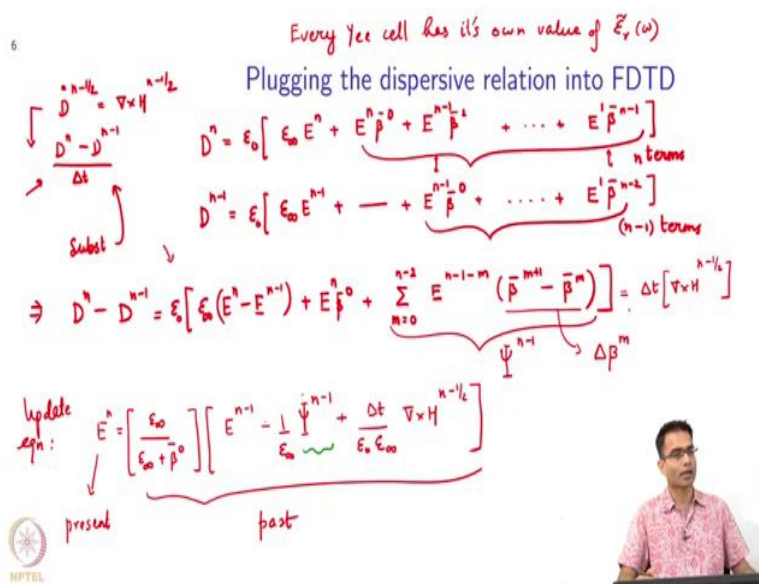 6
Every Yee cell has it's own value of ε̃ᵣ(ω)
Plugging the dispersive relation into FDTD
Ḋ^{n-1/2} = ∇×H^{n-1/2}
D^n - D^{n-1} / Δt
Subst
D^n = ε₀[ ε∞ E^n + E^n β̄^0 + E^{n-1} β̄^1 + ··· + E^1 β̄^{n-1} ]
n terms
D^{n-1} = ε₀[ ε∞ E^{n-1} + — + E^{n-1} β̄^0 + ···· + E^1 β̄^{n-2} ]
(n-1) terms
⇒ D^n - D^{n-1} = ε₀[ ε∞(E^n - E^{n-1}) + E^n β̄^0 + Σ_{m=0}^{n-2} E^{n-1-m} (β̄^{m+1} - β̄^m) ] = Δt[∇×H^{n-1/2}]
Ψ^{n-1}
Δβ^m
Update eqn: E^n = [ ε∞ / (ε∞ + β̄^0) ] [ E^{n-1} - 1/ε∞ Ψ^{n-1} + Δt/(ε₀ ε∞) ∇×H^{n-1/2} ]
present
past
NPTEL